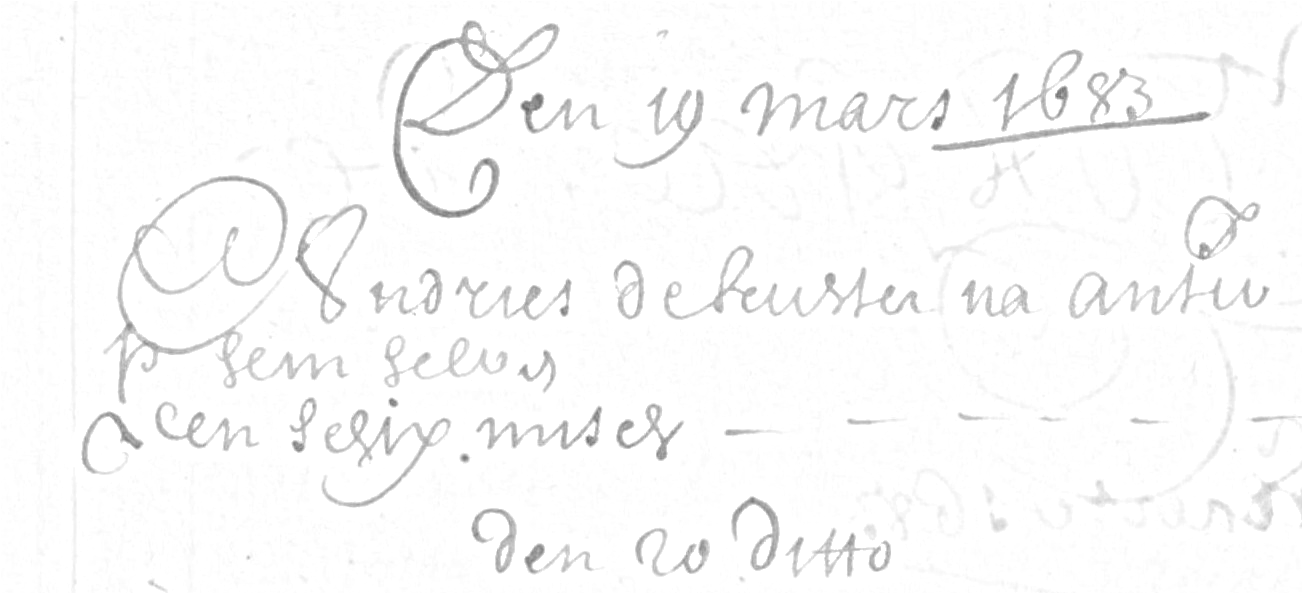 Den 19 mars 1683
Andries de beuster na antw
p hem selve
een
den 20 ditto